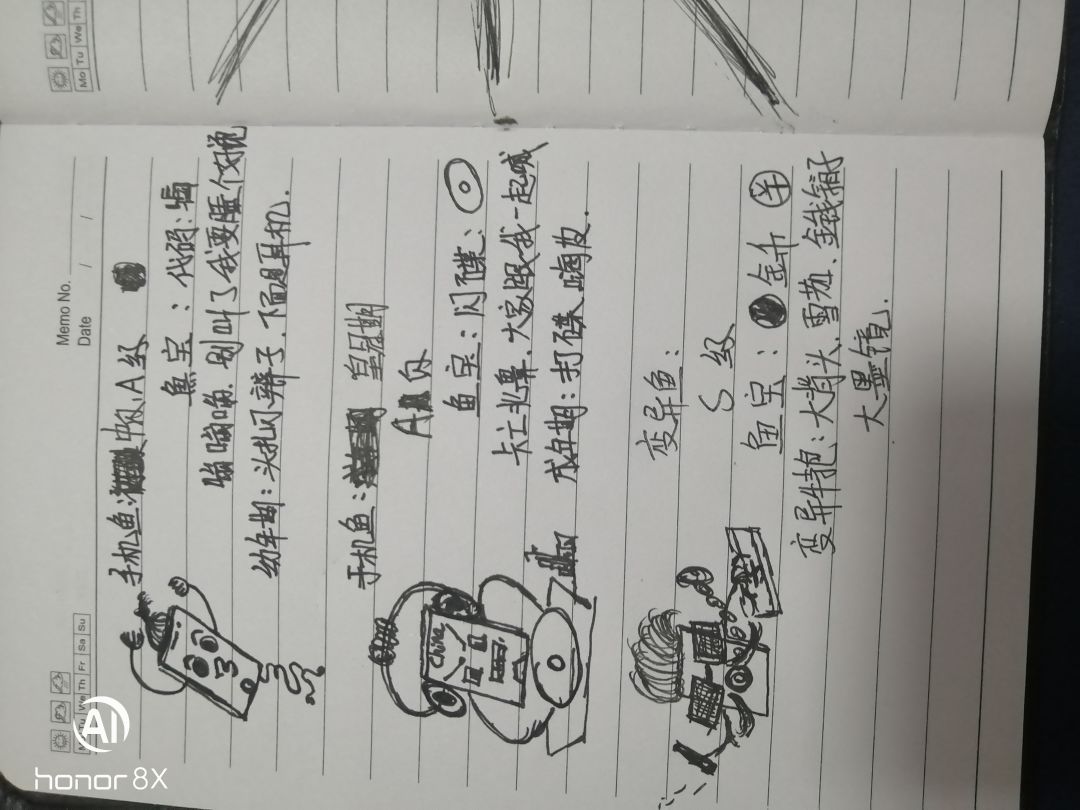 Memo No.
Date / /
Mo Tu We Th Fr Sa Su
手机鱼: 中级, A级
鱼宝: 代码:
嗡嗡嗡. 别叫了我要睡个好觉
幼年期: 头扎闪辫子. 下面是耳机.
手机鱼: 皇冠期
A级
鱼宝: 闪碟:
大家跟我一起喊
成年期: 打碟嗨皮.
China
变异鱼:
S级
鱼宝: 金币
变异特抱: 大背头、雪茄、金钱箱子
大墨镜.
Mo Tu We Th
AI
honor 8X